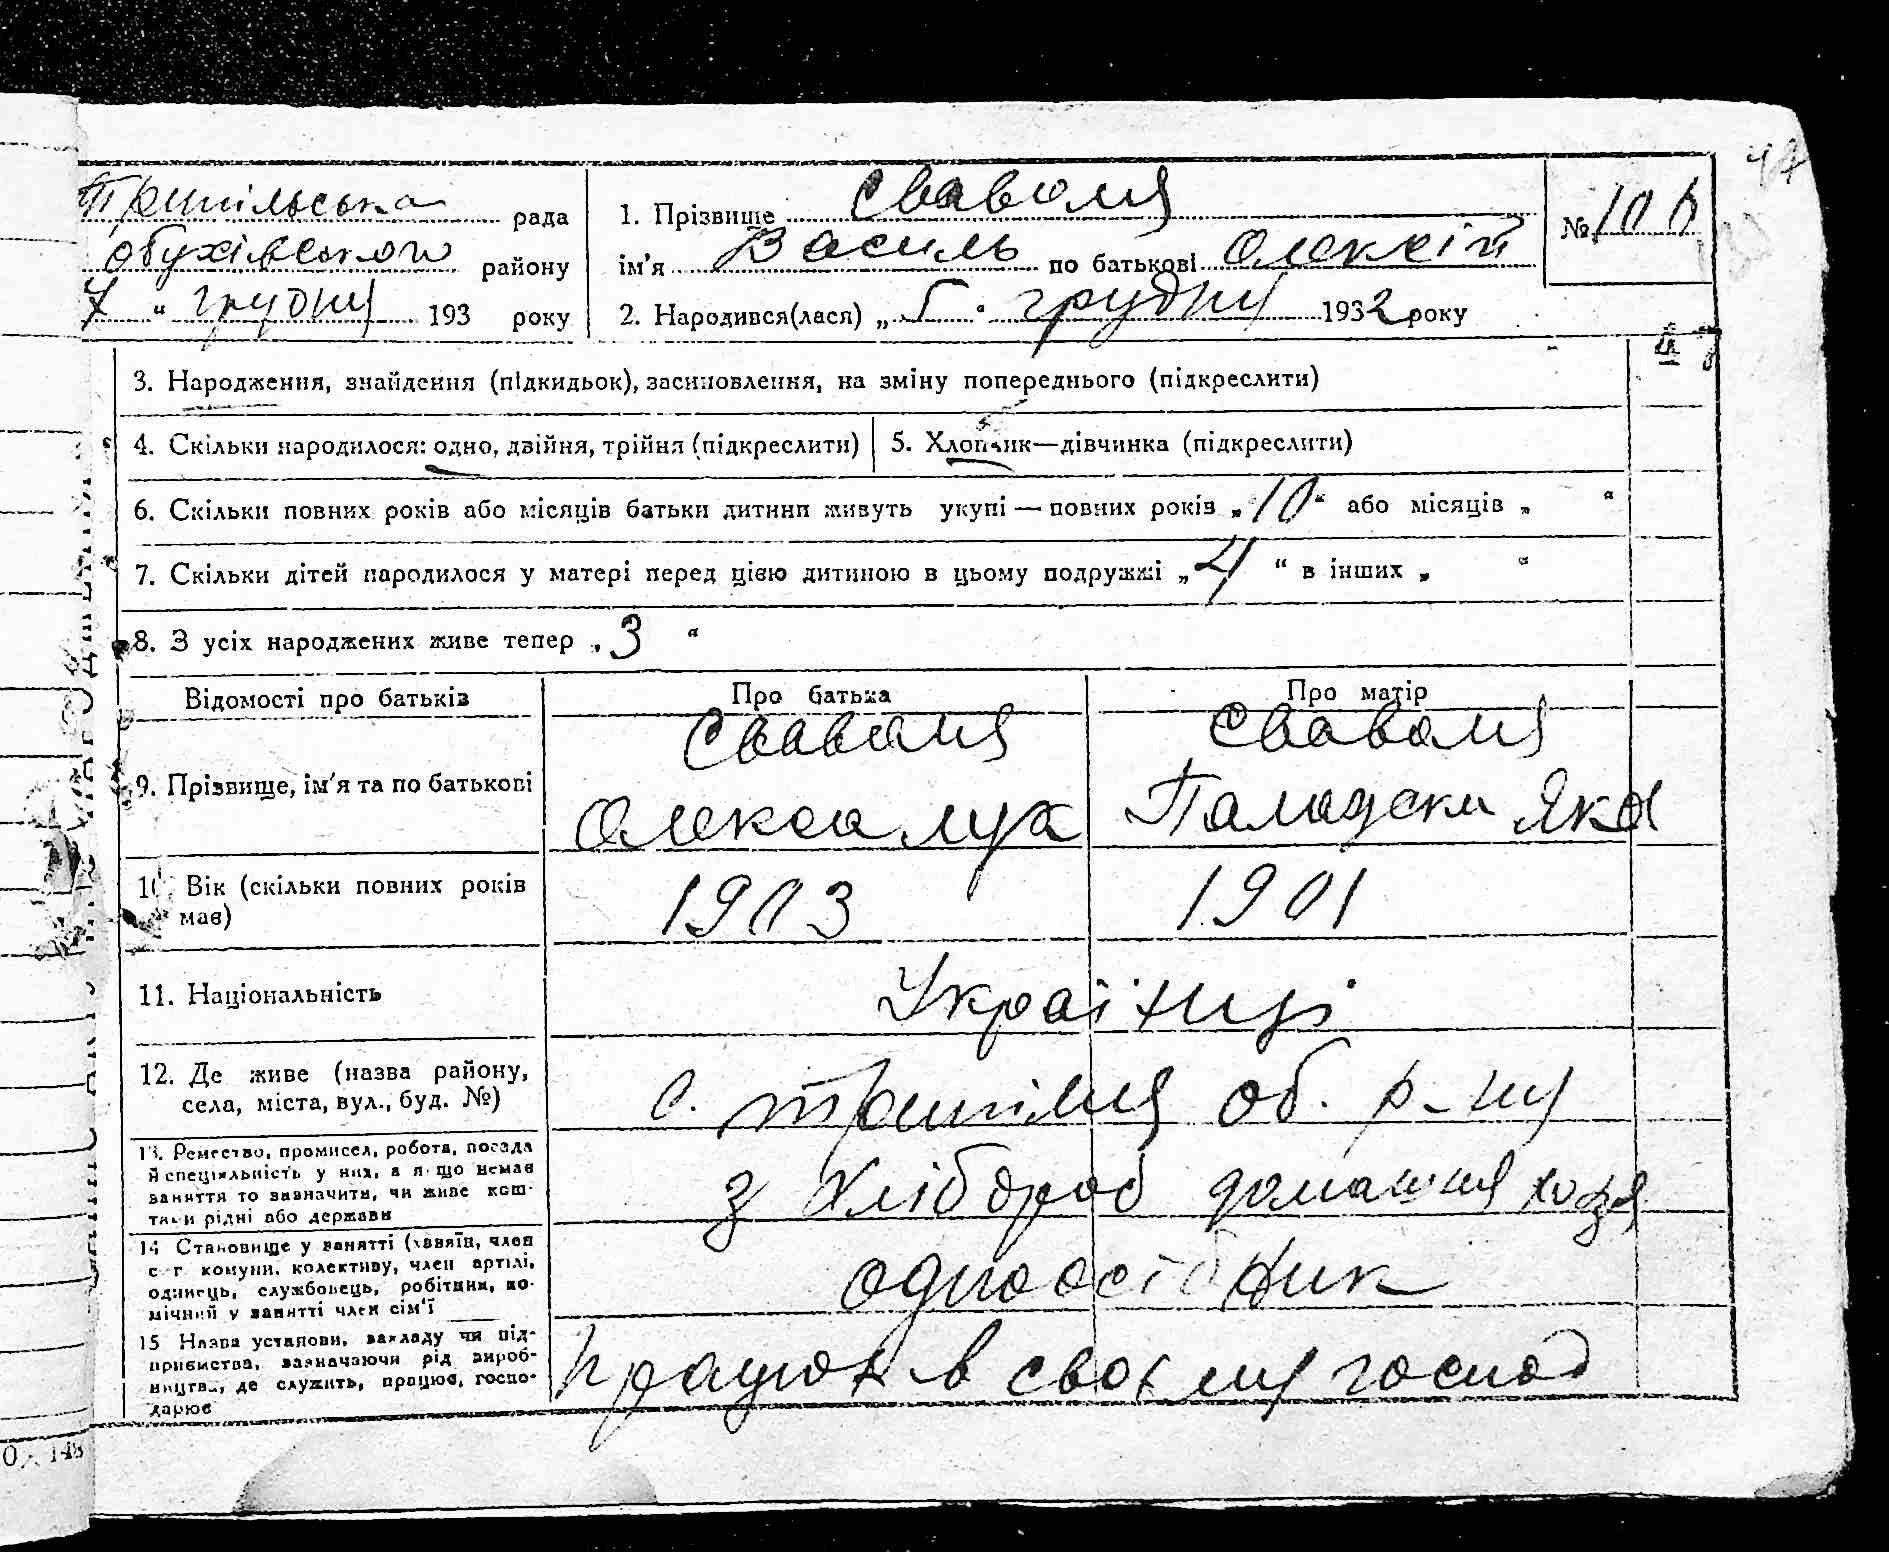 Трипільська рада
Обухівського району
7 " грудня 193 року
1. Прізвище Сваволя
ім'я Василь по батькові Олексій
2. Народився(лася) „ 5 " грудня 1932 року
№ 106
3. Народження, знайдення (підкидьок), засиновлення, на зміну попереднього (підкреслити)
4. Скільки народилося: одно, двійня, трійня (підкреслити)
5. Хлопчик—дівчинка (підкреслити)
6. Скільки повних років або місяців батьки дитини живуть укупі — повних років „ 10 “ або місяців „ “
7. Скільки дітей народилося у матері перед цією дитиною в цьому подружжі „ 4 “ в інших „ “
8. З усіх народжених живе тепер „ 3 “
Відомості про батьків
Про батька
Про матір
9. Прізвище, ім'я та по батькові
Сваволя
Олекса лук
Сваволя
Палазска Яко
10. Вік (скільки повних років
має)
1903
1901
11. Національність
Українці
12. Де живе (назва району,
села, міста, вул., буд. №)
с. Трипілля об. р-ну
13. Ремество, промисел, робота, посада
й спеціяльність у них, а якщо немає
заняття то зазначити, чи живе кош-
тами рідні або держави
з хлібороб домашня хозя
14 Становище у занятті (хазяїн, член
с.-г. комуни, колективу, член артілі,
одинець, службовець, робітник, по-
мічний у занятті член сім'ї
одноосібник
15 Назва установи, закладу чи під-
приємства, зазначаючи рід вироб-
ництва, де служить, працює, госпо-
дарює
працює в своєму господ